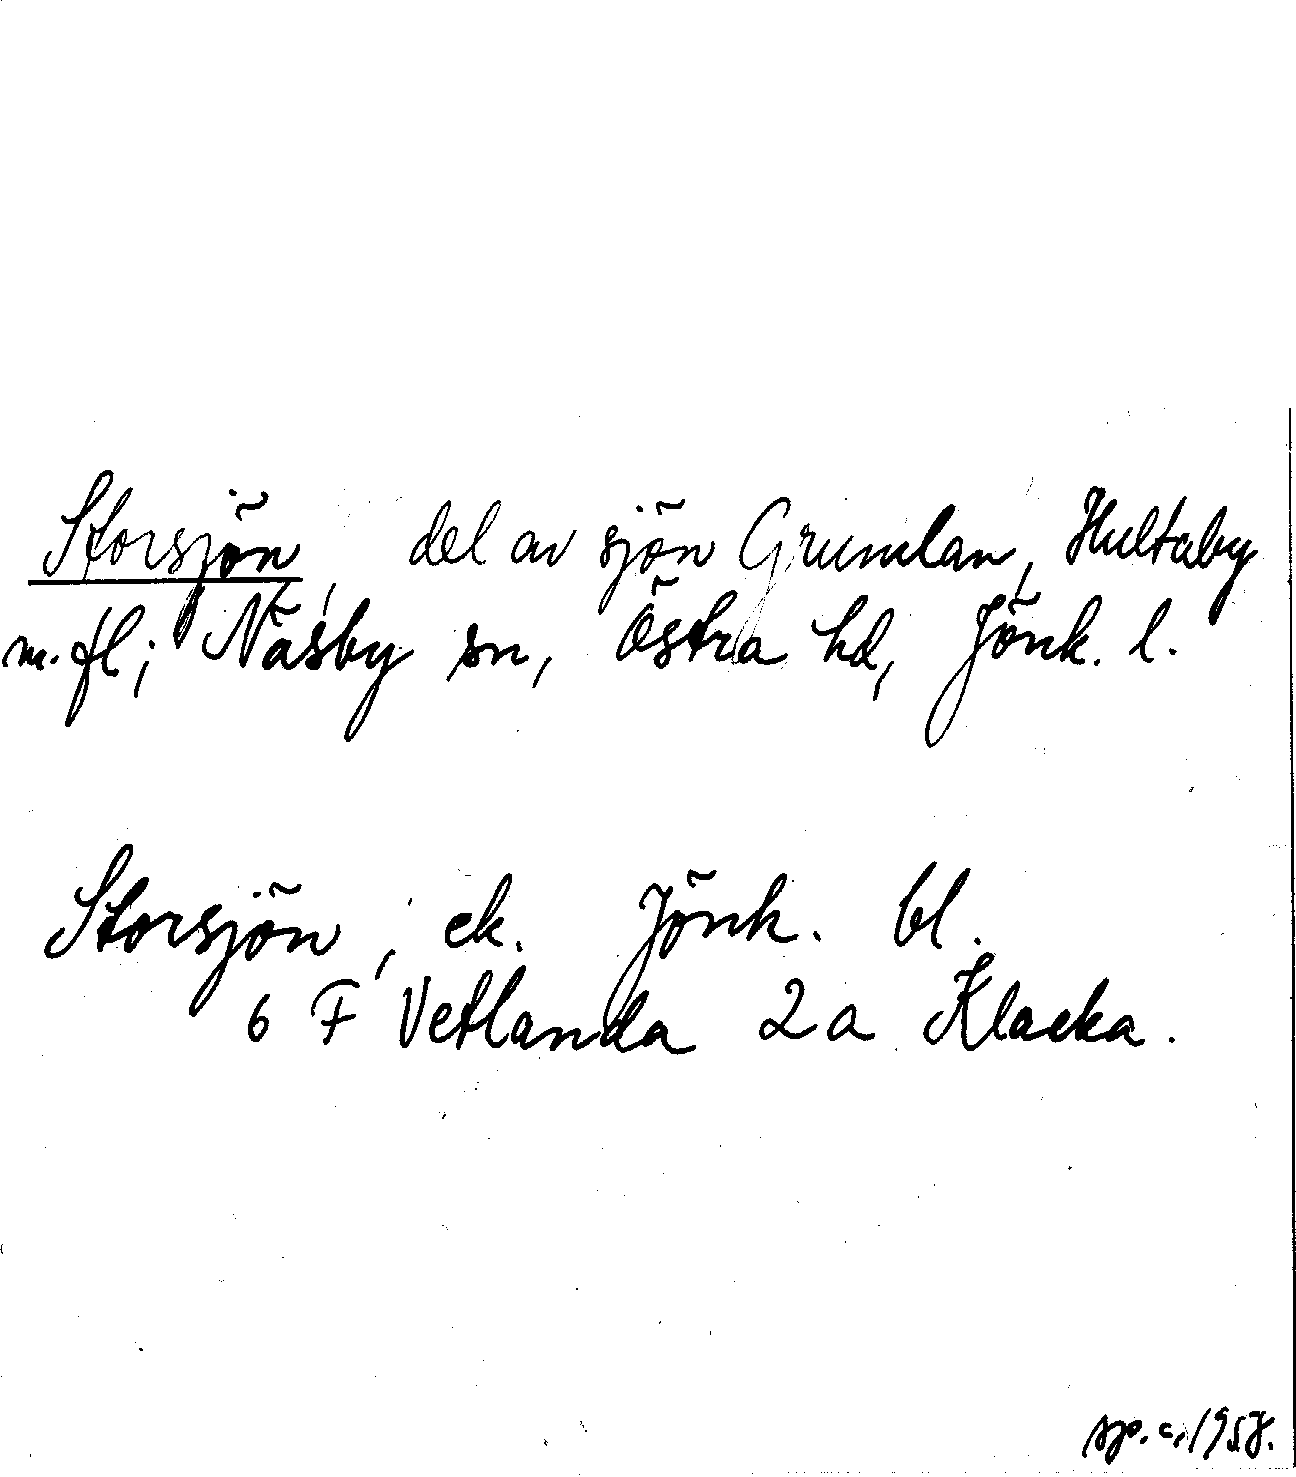 Storsjön, del av sjön Grumlan, Hultaby
m.fl; Näsby sn, Östra hd, Jönk. l.
Storsjön, ek. Jönk. bl.
6 F Vetlanda 2a Klacka.
1957.